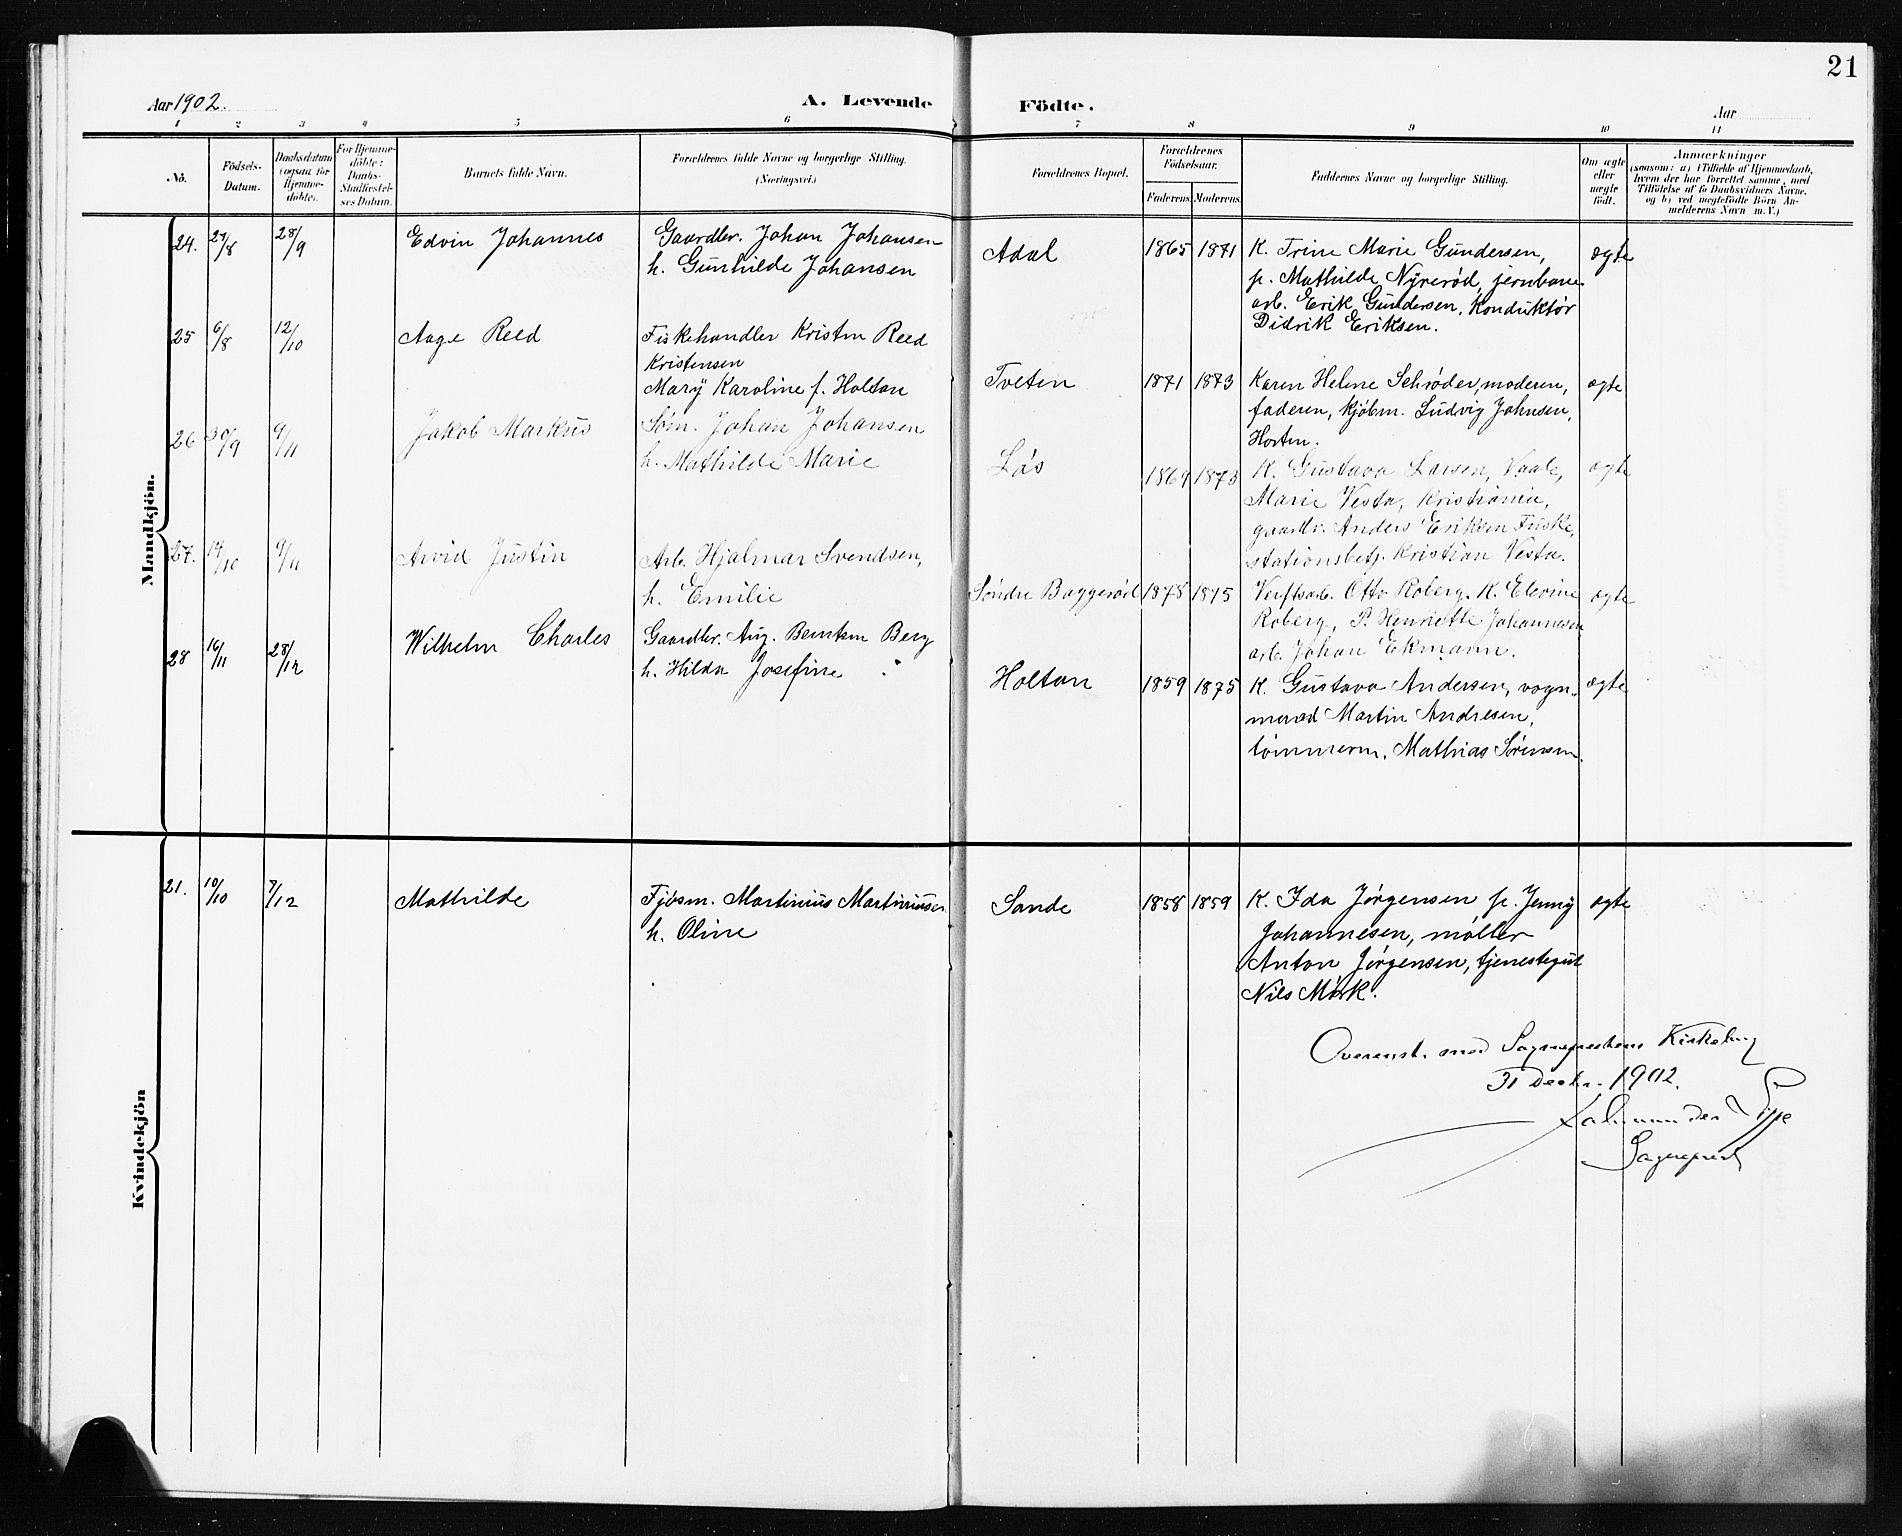 21
Aar 1902.
A. Levende Födte.
Aar
1 2 3 4 5 6 7 8 9 10 11
No.
Födsels-Datum.
Daabsdatum (ogsaa for Hjemmedöbte).
For Hjemmedöbte: Daabs-Stadfæstelses Datum.
Barnets fulde Navn.
Forældrenes fulde Navne og borgerlige Stilling.
(Næringsvei.)
Forældrenes Bopæl.
Forældrenes Födselsaar.
Faderens. Moderens.
Faddernes Navne og borgerlige Stilling.
Om ægte eller uægte födt.
Anmærkninger
(saasom: a) i Tilfælde af Hjemmedaab, hvem der har forrettet samme, med Tilföielse af to Daabsvidners Navne, og b) ved uægtefödte Börn Anmelderens Navn m. V.)
Mandkjön.
24. 27/8 28/9 Edvin Johannes Gaardbr. Johan Johansen
h. Gunhilde Johansen
Adal 1865 1871 K. Trine Marie Gundersen, ægte
p. Mathilde Nyrerød, jernbane
arb. Erik Gundersen, Konduktør
Didrik Eriksen.
25 6/8 12/10 Aage Reed Fiskehandler Kristen Reed
Kristensen
Mary Karoline f. Holtan
Tveten 1871 1873 Karen Helene Schrøder, moderen, ægte
faderen, kjøbm. Ludvig Johnsen,
Horten.
26 30/9 9/11 Jakob Markus Søm. Johan Johansen
h. Mathilde Marie
Løs 1869 1873 K. Gustava Larsen, Vaale, ægte
Marie Vesta, Kristiania,
gaardbr. Anders Eriksen Fuske,
stationsbetj. Kristian Vesta.
27. 14/10 9/11 Arvid Justin Arb. Hjalmar Svendsen,
h. Emilie
Søndre Baggerød 1878 1875 Verftsarb. Otto Roberg, K. Elevine ægte
Roberg, P. Henriette Johannesen
arb. Johan Ekmann.
28 16/11 28/12 Wilhelm Charles Gaardbr. Aug. Berntsen Berg
h. Hilda Josefine "
Holtan 1859 1875 K. Gustava Andersen, vogn- ægte
mand Martin Andresen,
tømmerm. Mathias Sørensen.
Kvindekjön
21. 10/10 7/12 Mathilde Fjøsm. Martinius Martiniusen
h. Oline
Sande 1858 1859 K. Ida Jørgensen p. Jenny ægte
Johannesen, møller
Anton Jørgensen, tjenestegut
Nils Mørk.
Overenst. med Sognepresten Kirkebog
31 Decbr. 1902.
Sogneprest